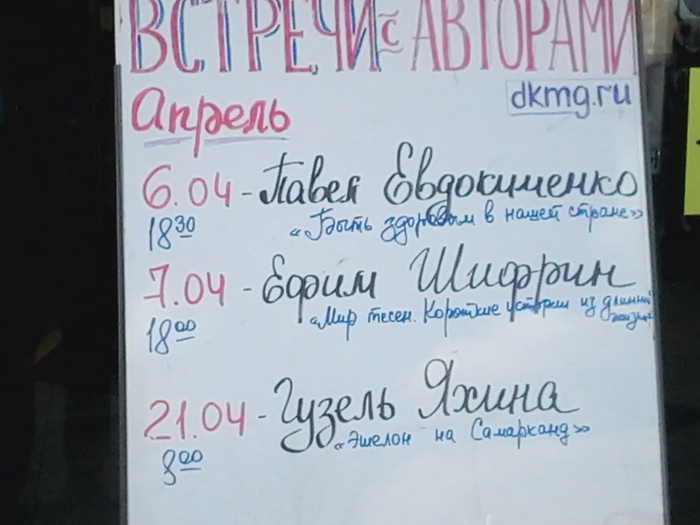 ВСТРЕЧИ с АВТОРАМИ
dkmg.ru
Апрель
6.04 - Павел Евдокименко
18 30 «Быть здоровым в нашей стране»
7.04 - Ефим Шифрин
18 00 «Мир тесен. Короткие истории из длинной
жизни»
21.04 - Гузель Яхина
8 00 «Эшелон на Самарканд»